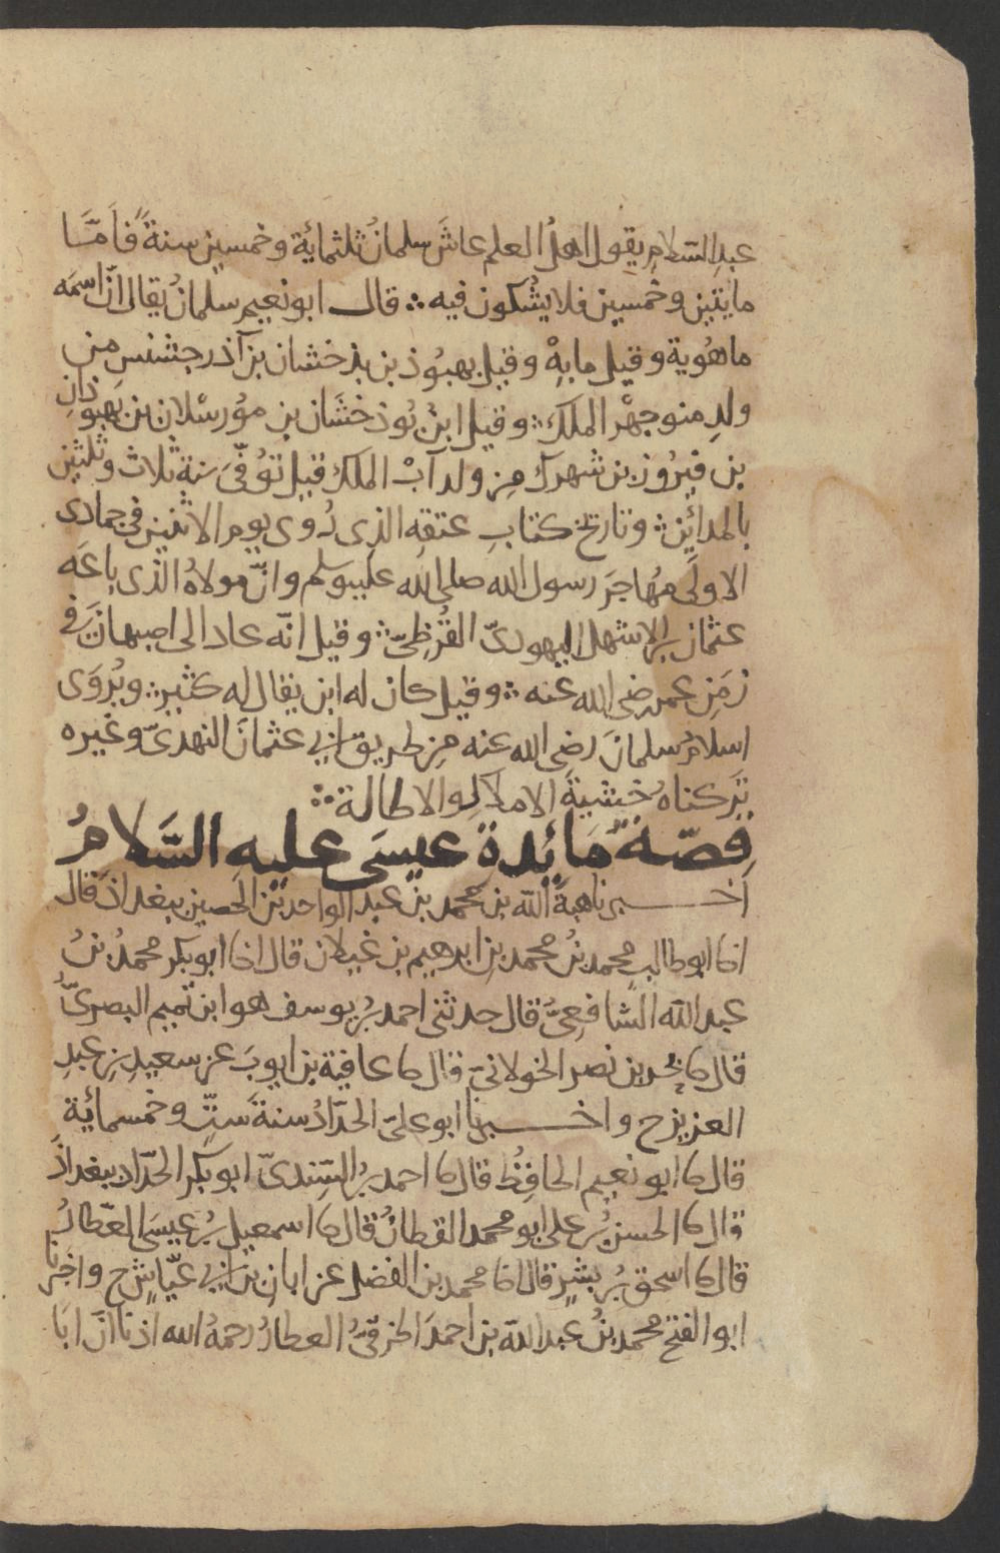 عبدِ السّلامِ يقول اهلُ العلم عاشَ سلمانُ ثلثمائةٍ وخمسين سنةً فأمّا
مايتين وخمسين فلا يشُكون فيه ؞ قال ابو نعيم سلمانُ يقال انّ اسمَه
ماهُوية وقيل مابهْ وقيل بهبُوذ بن بذخشان بن آذرجشنس من
ولدِ منوجهْر الملك ؞ وقيل ابنُ بُوذخشَان بن مؤرسْلان بن بهبوذان
بن فيرُوز بن شهرك مِن ولد آبْ الملك قيل توُفّى سنة ثلاث وثلثين
بالمدائن ؞ وتاريخ كتابِ عتقِه الذى رُوى يوم الاثنين فى جمادى
الاولى مُهاجرَ رسول الله صلى الله عليه وسلم وانّ مولاهُ الذى باعَه
عثمان بن الاشهل اليهودىّ القُرظِىّ ؞ وقيل انّه عاد الى اصبهانَ فى
زمَنِ عمر رضى الله عنه ؞ وقيل كان له ابن يقال له كثير ؞ ويُروَى
اسلامُ سلمانَ رضى الله عنه مِن طريق ابى عثمانَ النهدىّ وغيره
تركناهُ خشيةَ الاملالِ والاطالة ؞
قِصّةُ مَائِدةِ عيسَى عليه السَّلامُ
اخبرنا هبةُ الله بن محمد بن عبد الواحد بن الحصين ببغداذ قال
انا ابو طالب محمد بنُ محمد بن ابرهيم بن غيلان قال انا ابو بكر محمدُ بنُ
عبد الله الشافعىُّ قال حدثنى احمد بنُ يوسف هو ابن تميم البصرىُّ
قال نا بُحر بن نصر الخولانىّ قال نا عافية بن ايوبَ عن سعيدِ بنِ عبدِ
العزيز ح واخبرنا ابو علىّ الحدّادُ سنةَ ستٍّ وخمسمائة
قال نا ابو نعيم الحافِظُ قال نا احمد بنُ السّندىّ ابو بكر الحدّاد ببغداذَ
قال نا الحسن بنُ على ابو محمد القطانُ قال نا اسمعيل بنُ عيسَى العطارُ
قال نا اسحق بنُ بشرٍ قال انا محمد بن الفضل عن ابان بن ابى عيّاشٍ ح واخبرنا
ابو الفتح محمد بنُ عبد الله بن احمدَ الخرقىُّ العطارُ رحمهُ الله اذنا انّ ابا